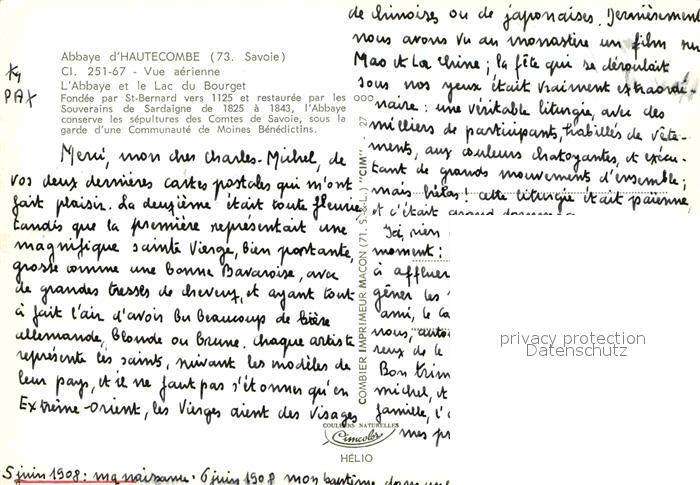 Abbaye d'HAUTECOMBE (73. Savoie)
Cl. 251-67 - Vue aérienne
L'Abbaye et le Lac du Bourget
Fondée par St-Bernard vers 1125 et restaurée par les
Souverains de Sardaigne de 1825 à 1843, l'Abbaye
conserve les sépultures des Comtes de Savoie, sous la
garde d'une Communauté de Moines Bénédictins.
PAX
Merci, mon cher Charles-Michel, de
vos deux dernières cartes postales qui m'ont
fait plaisir. La deuxième était toute fleurie
tandis que la première représentait une
magnifique sainte Vierge, bien portante,
grosse comme une bonne Bavaroise, avec
de grandes tresses de cheveux, et ayant tout
à fait l'air d'avoir bu beaucoup de bière
allemande, blonde ou brune. chaque artiste
représente les saints, suivant les modèles de
leur pays, et il ne faut pas s'étonner qu'en
Extrême-Orient, les Vierges aient des visages
de chinoises ou de japonaises. Dernièrement
nous avons vu au monastère un film sur
Mao et La Chine ; la fête qui se déroulait
sous nos yeux était vraiment extraordi-
naire : une véritable liturgie, avec des
milliers de participants, habillés de vête-
ments, aux couleurs chatoyantes, et exécu-
tant de grands mouvements d'ensemble ;
mais hélas ! cette liturgie était païenne,
et c'était grand dommage
Ici, rien
moment :
à affluer
gêner les
ami, le
nous,
reux de le
Bon
michel, et
famille,
mes
27
COMBIER IMPRIMEUR MACON (71. S.-&-L.) "CIM"
COULEURS NATURELLES
Cimcolor
HÉLIO
privacy protection
Datenschutz
5 juin 1908 : ma naissance. 6 juin 1908 mon baptême dans une